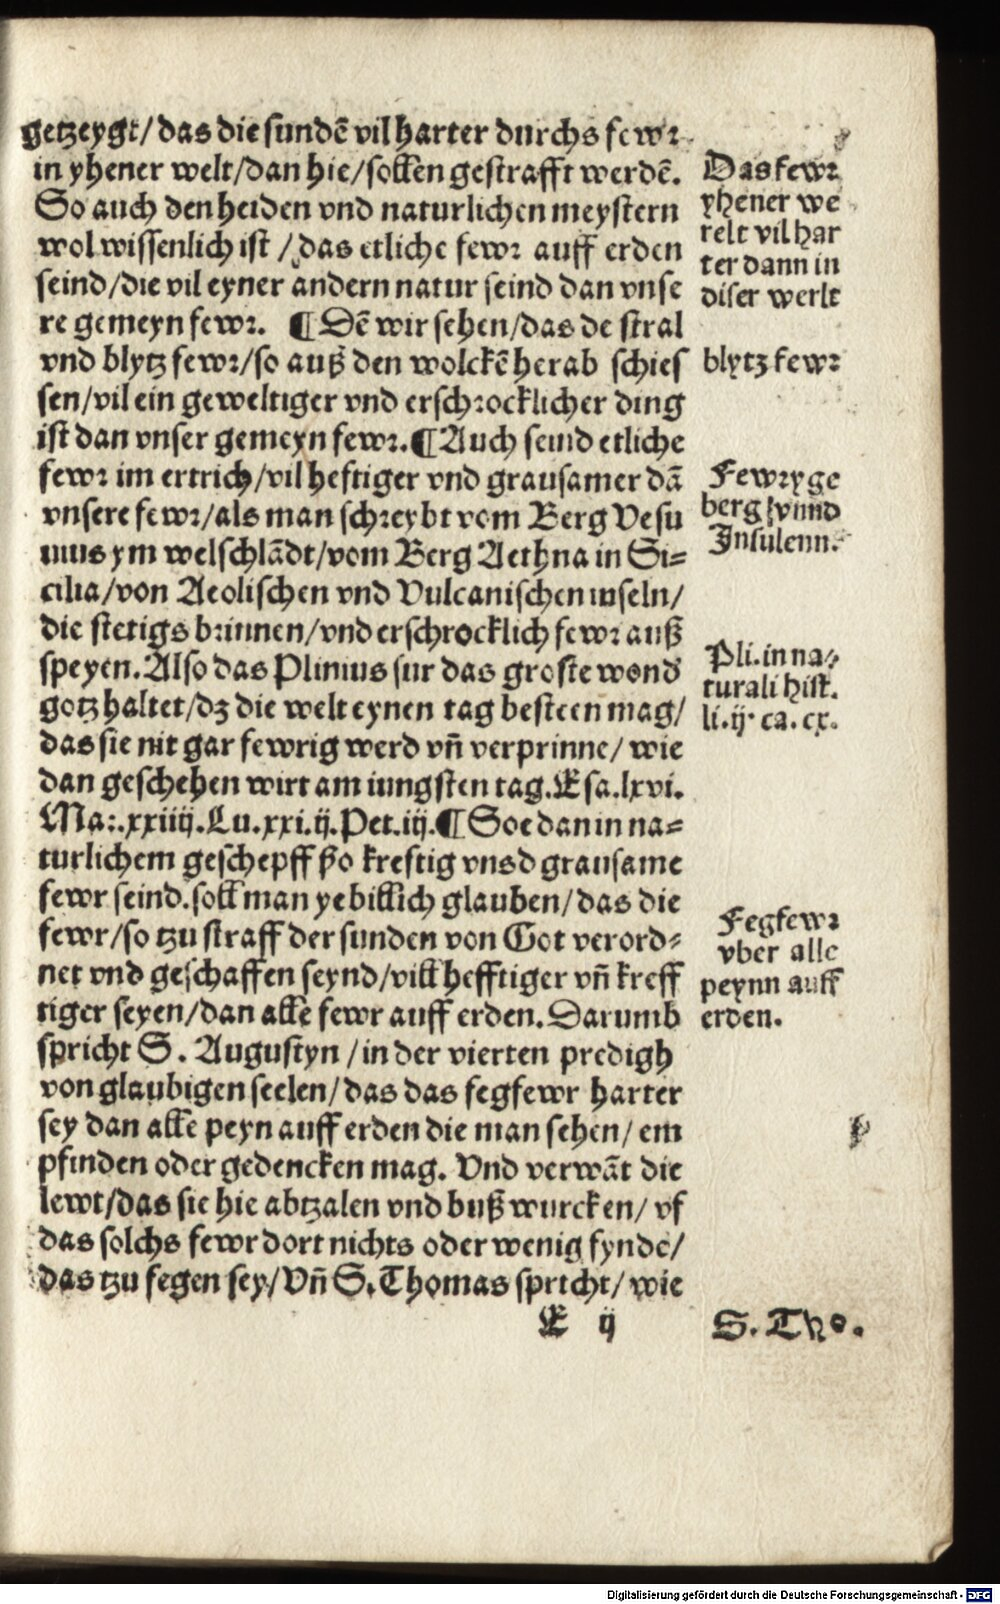 getzeygt/das die sundē vil harter durchs fewꝛ
in yhener welt/dan hie/sollen gestrafft werdē.
So auch den heiden vnd naturlichen meystern
wol wissenlich ist /das etliche fewꝛ auff erden
seind/die vil eyner andern natur seind dan vnse
re gemeyn fewꝛ. ¶ Dē wir sehen/das de stral
vnd blytz fewꝛ/so auß den wolckē herab schies
sen/vil ein geweltiger vnd erschꝛocklicher ding
ist dan vnser gemeyn fewꝛ.¶ Auch seind etliche
fewꝛ im ertrich/vil heftiger vnd grausamer dā
vnsere fewꝛ/als man schꝛeybt vom Berg Vesu
uius ym welschlādt/vom Berg Aethna in Si=
cilia/von Aeolischen vnd Vulcanischen inseln/
die stetigs bꝛinnen/vnd erschrocklich fewꝛ auß
speyen. Also das Plinius fur das groste wond
gotz haltet/dz die welt eynen tag besteen mag/
das sie nit gar fewrig werd vñ verprinne/ wie
dan geschehen wirt am iungsten tag. Esa.lxvi.
Maꝛ.xxiiij.Lu.xxi.ij.Pet.iij.¶ So e dan in na=
turlichem geschepff ßo kreftig vnsd grausame
fewr seind. soll man ye billich glauben/das die
fewr/so tzu straff der sunden von Got verord=
net vnd geschaffen seynd/vill hefftiger vñ kreff
tiger seyen/dan alle fewr auff erden. Darumb
spricht S. Augustyn /in der vierten predigh
von glaubigen seelen/das das fegfewr harter
sey dan alle peyn auff erden die man sehen/ em
pfinden oder gedencken mag. Vnd verwāt die
lewt/das sie hie abtzalen vnd buß wurcken/ vf
das solchs fewr dort nichts oder wenig fynde/
das tzu fegen sey/Vñ S. Thomas spricht/ wie
E ij
Das fewꝛ
yhener we
relt vil har
ter dann in
diser werlt
blytz fewꝛ
Fewꝛyge
berg vnnd
Insulenn.
Pli. in na=
turali hist.
li. ij. ca. cx.
Fegfewꝛ
vber alle
peynn auff
erden.
S. Tho.
Digitalisierung gefördert durch die Deutsche Forschungsgemeinschaft - DFG